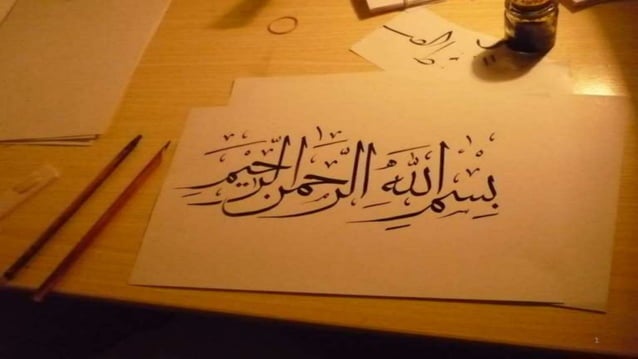 بِسْمِ اللهِ الرَّحْمٰنِ الرَّحِيْمِ
1